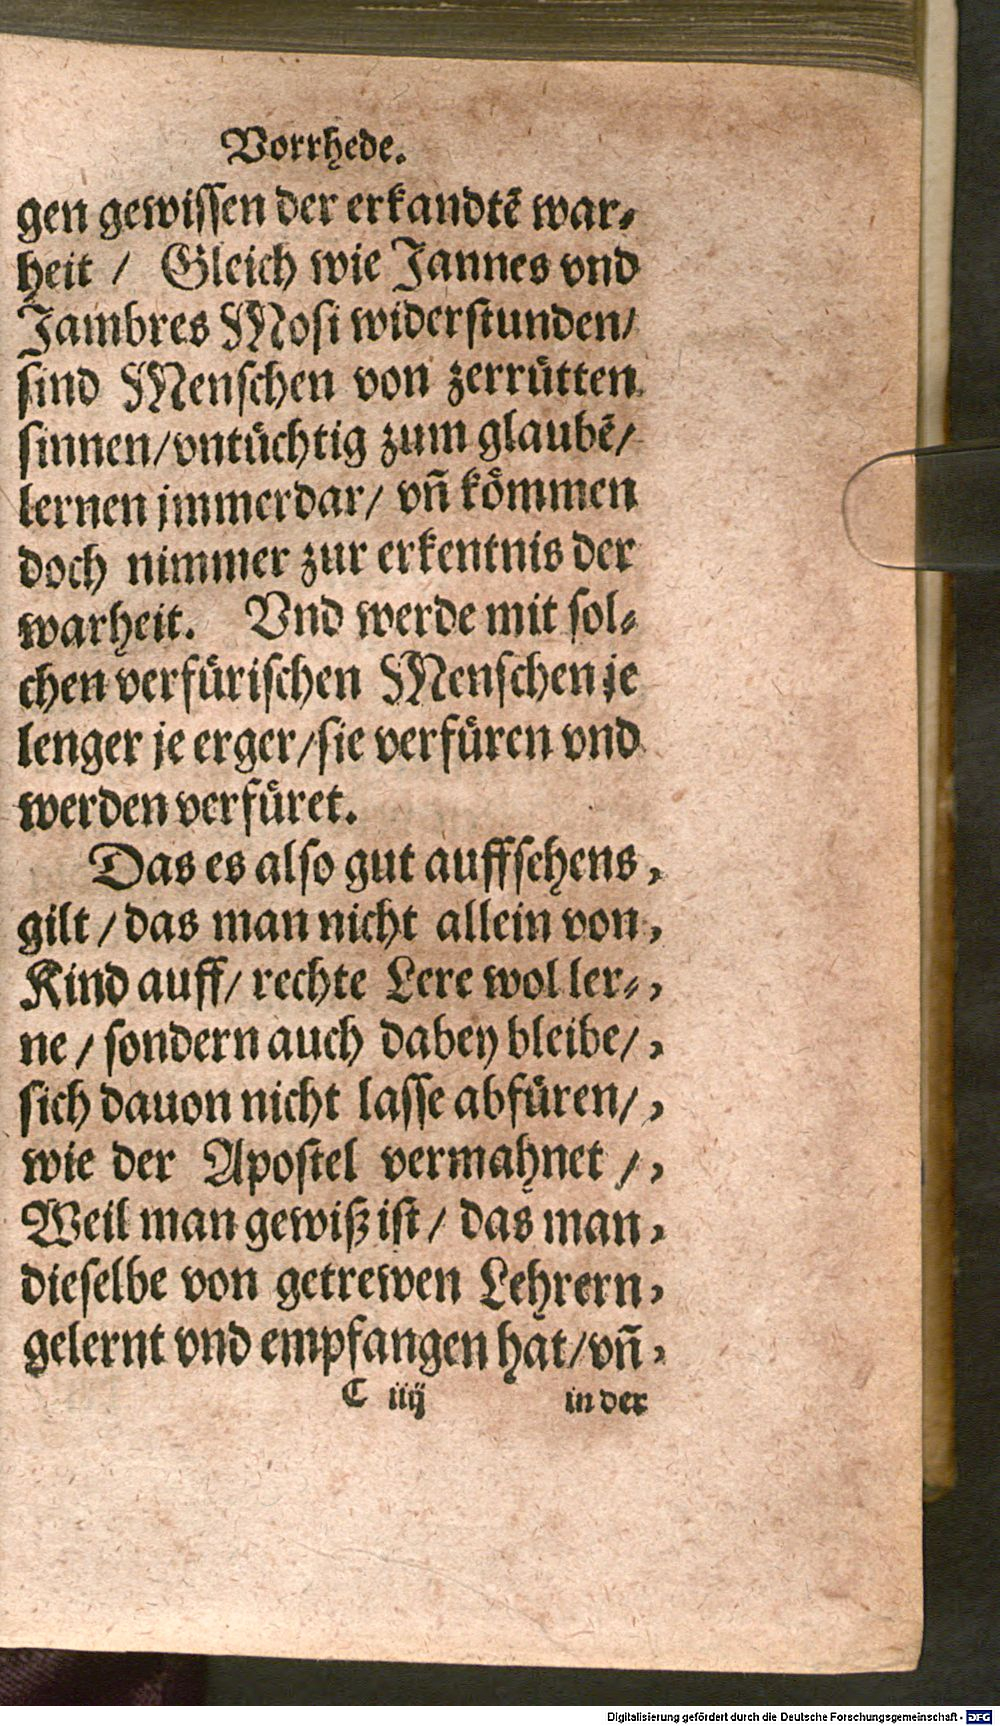 Vorrhede.
gen gewissen der erkandtẽ war-
heit / Gleich wie Jannes vnd
Jambres Mosi widerstunden/
sind Menschen von zerrütten
sinnen/vntüchtig zum glaubẽ/
lernen jmmerdar/ vñ kömmen
doch nimmer zur erkentnis der
warheit. Vnd werde mit sol-
chen verfürischen Menschen je
lenger je erger/sie verfüren vnd
werden verfüret.
Das es also gut auffsehens ,
gilt / das man nicht allein von ,
Kind auff/ rechte Lere wol ler- ,
ne / sondern auch dabey bleibe/ ,
sich dauon nicht lasse abfüren/ ,
wie der Apostel vermahnet / ,
Weil man gewiß ist / das man ,
dieselbe von getrewen Lehrern ,
gelernt vnd empfangen hat/vñ ,
C iiij in der
Digitalisierung gefördert durch die Deutsche Forschungsgemeinschaft - DFG